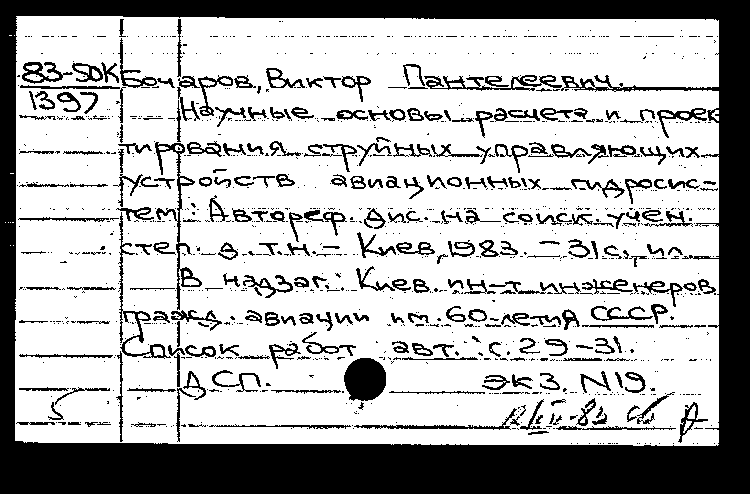 83-50К Бочаров, Виктор Пантелеевич.
1397 Научные основы расчета и проек
тирования струйных управляющих
устройств авиационных гидросис-
тем: Автореф. дис. на соиск. учен.
степ. д.т.н. – Киев, 1983. – 31 с., ил.
В надзаг.: Киев. ин-т инженеров
гражд. авиации им. 60-летия СССР.
Список работ авт.: с. 29-31.
ДСП. экз. N19.